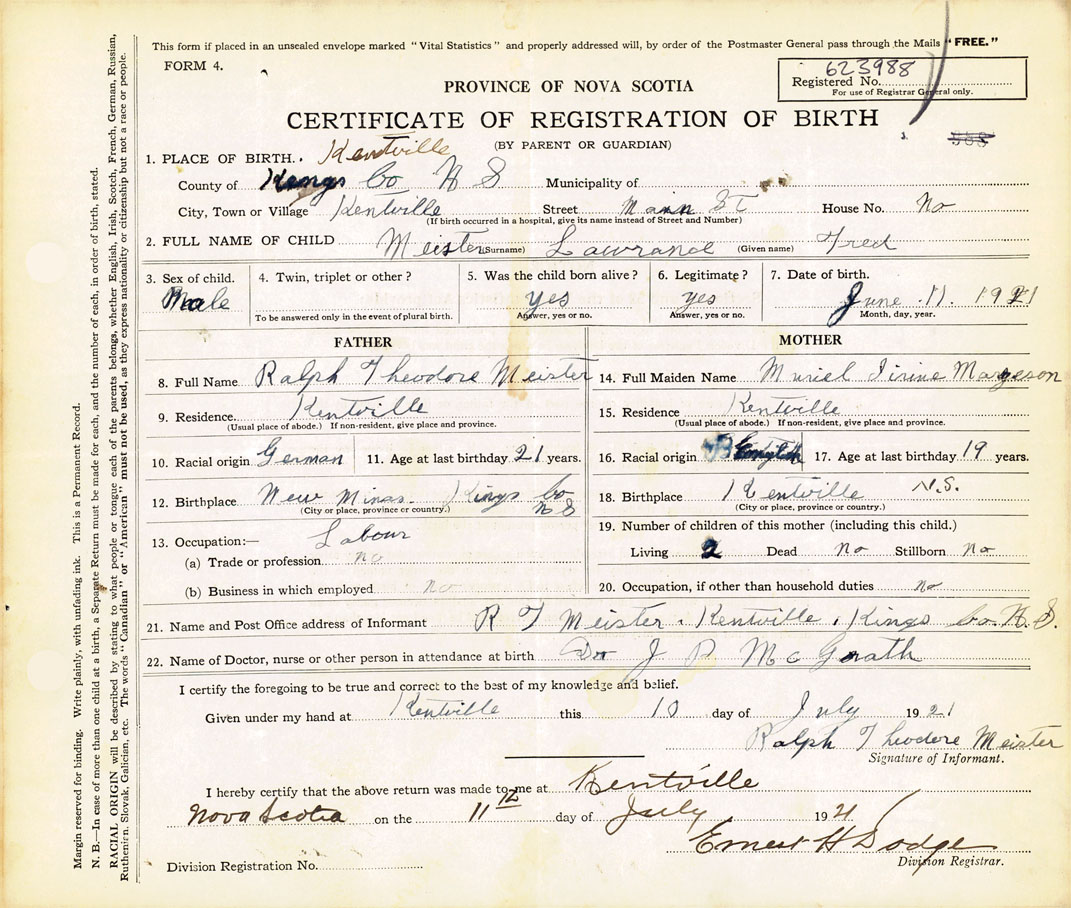 This form if placed in an unsealed envelope marked "Vital Statistics" and properly addressed will, by order of the Postmaster General pass through the Mails "FREE."
FORM 4.
623988
Registered No.
For use of Registrar General only.
PROVINCE OF NOVA SCOTIA
CERTIFICATE OF REGISTRATION OF BIRTH
(BY PARENT OR GUARDIAN)
1. PLACE OF BIRTH. Kentville
County of Kings Co N S Municipality of
City, Town or Village Kentville Street Main ST House No. No
(If birth occurred in a hospital, give its name instead of Street and Number)
2. FULL NAME OF CHILD Meister (Surname) Lawrance (Given name) Fred
3. Sex of child. 4. Twin, triplet or other? 5. Was the child born alive? 6. Legitimate? 7. Date of birth.
Male yes yes June 11. 1921
To be answered only in the event of plural birth. Answer, yes or no. Answer, yes or no. Month, day, year.
FATHER
8. Full Name Ralph Theodore Meister
9. Residence. Kentville
(Usual place of abode.) If non-resident, give place and province.
10. Racial origin German 11. Age at last birthday 21 years.
12. Birthplace New Minas. Kings Co N S
(City or place, province or country.)
13. Occupation:— Labour
(a) Trade or profession no
(b) Business in which employed no
MOTHER
14. Full Maiden Name Muriel Irine Margeson
15. Residence Kentville
(Usual place of abode.) If non-resident, give place and province.
16. Racial origin English 17. Age at last birthday 19 years.
18. Birthplace Kentville N.S.
(City or place, province or country.)
19. Number of children of this mother (including this child.)
Living 2 Dead No Stillborn No
20. Occupation, if other than household duties no
21. Name and Post Office address of Informant R T Meister. Kentville. Kings Co. N. S.
22. Name of Doctor, nurse or other person in attendance at birth Dr J P McGrath
I certify the foregoing to be true and correct to the best of my knowledge and belief.
Given under my hand at Kentville this 10 day of July 1921
Ralph Theodore Meister
Signature of Informant.
I hereby certify that the above return was made to me at Kentville
Nova Scotia on the 11th day of July 1921
Ernest H Dodge
Division Registrar.
Division Registration No.
Margin reserved for binding. Write plainly, with unfading ink. This is a Permanent Record.
N. B.—In case of more than one child at a birth, a Separate Return must be made for each, and the number of each, in order of birth, stated.
RACIAL ORIGIN will be described by stating to what people or tongue each of the parents belongs, whether English, Irish, Scotch, French, German, Russian,
Ruthenian, Slovak, Galician, etc. The words "Canadian" or "American" must not be used, as they express nationality or citizenship but not a race or people.